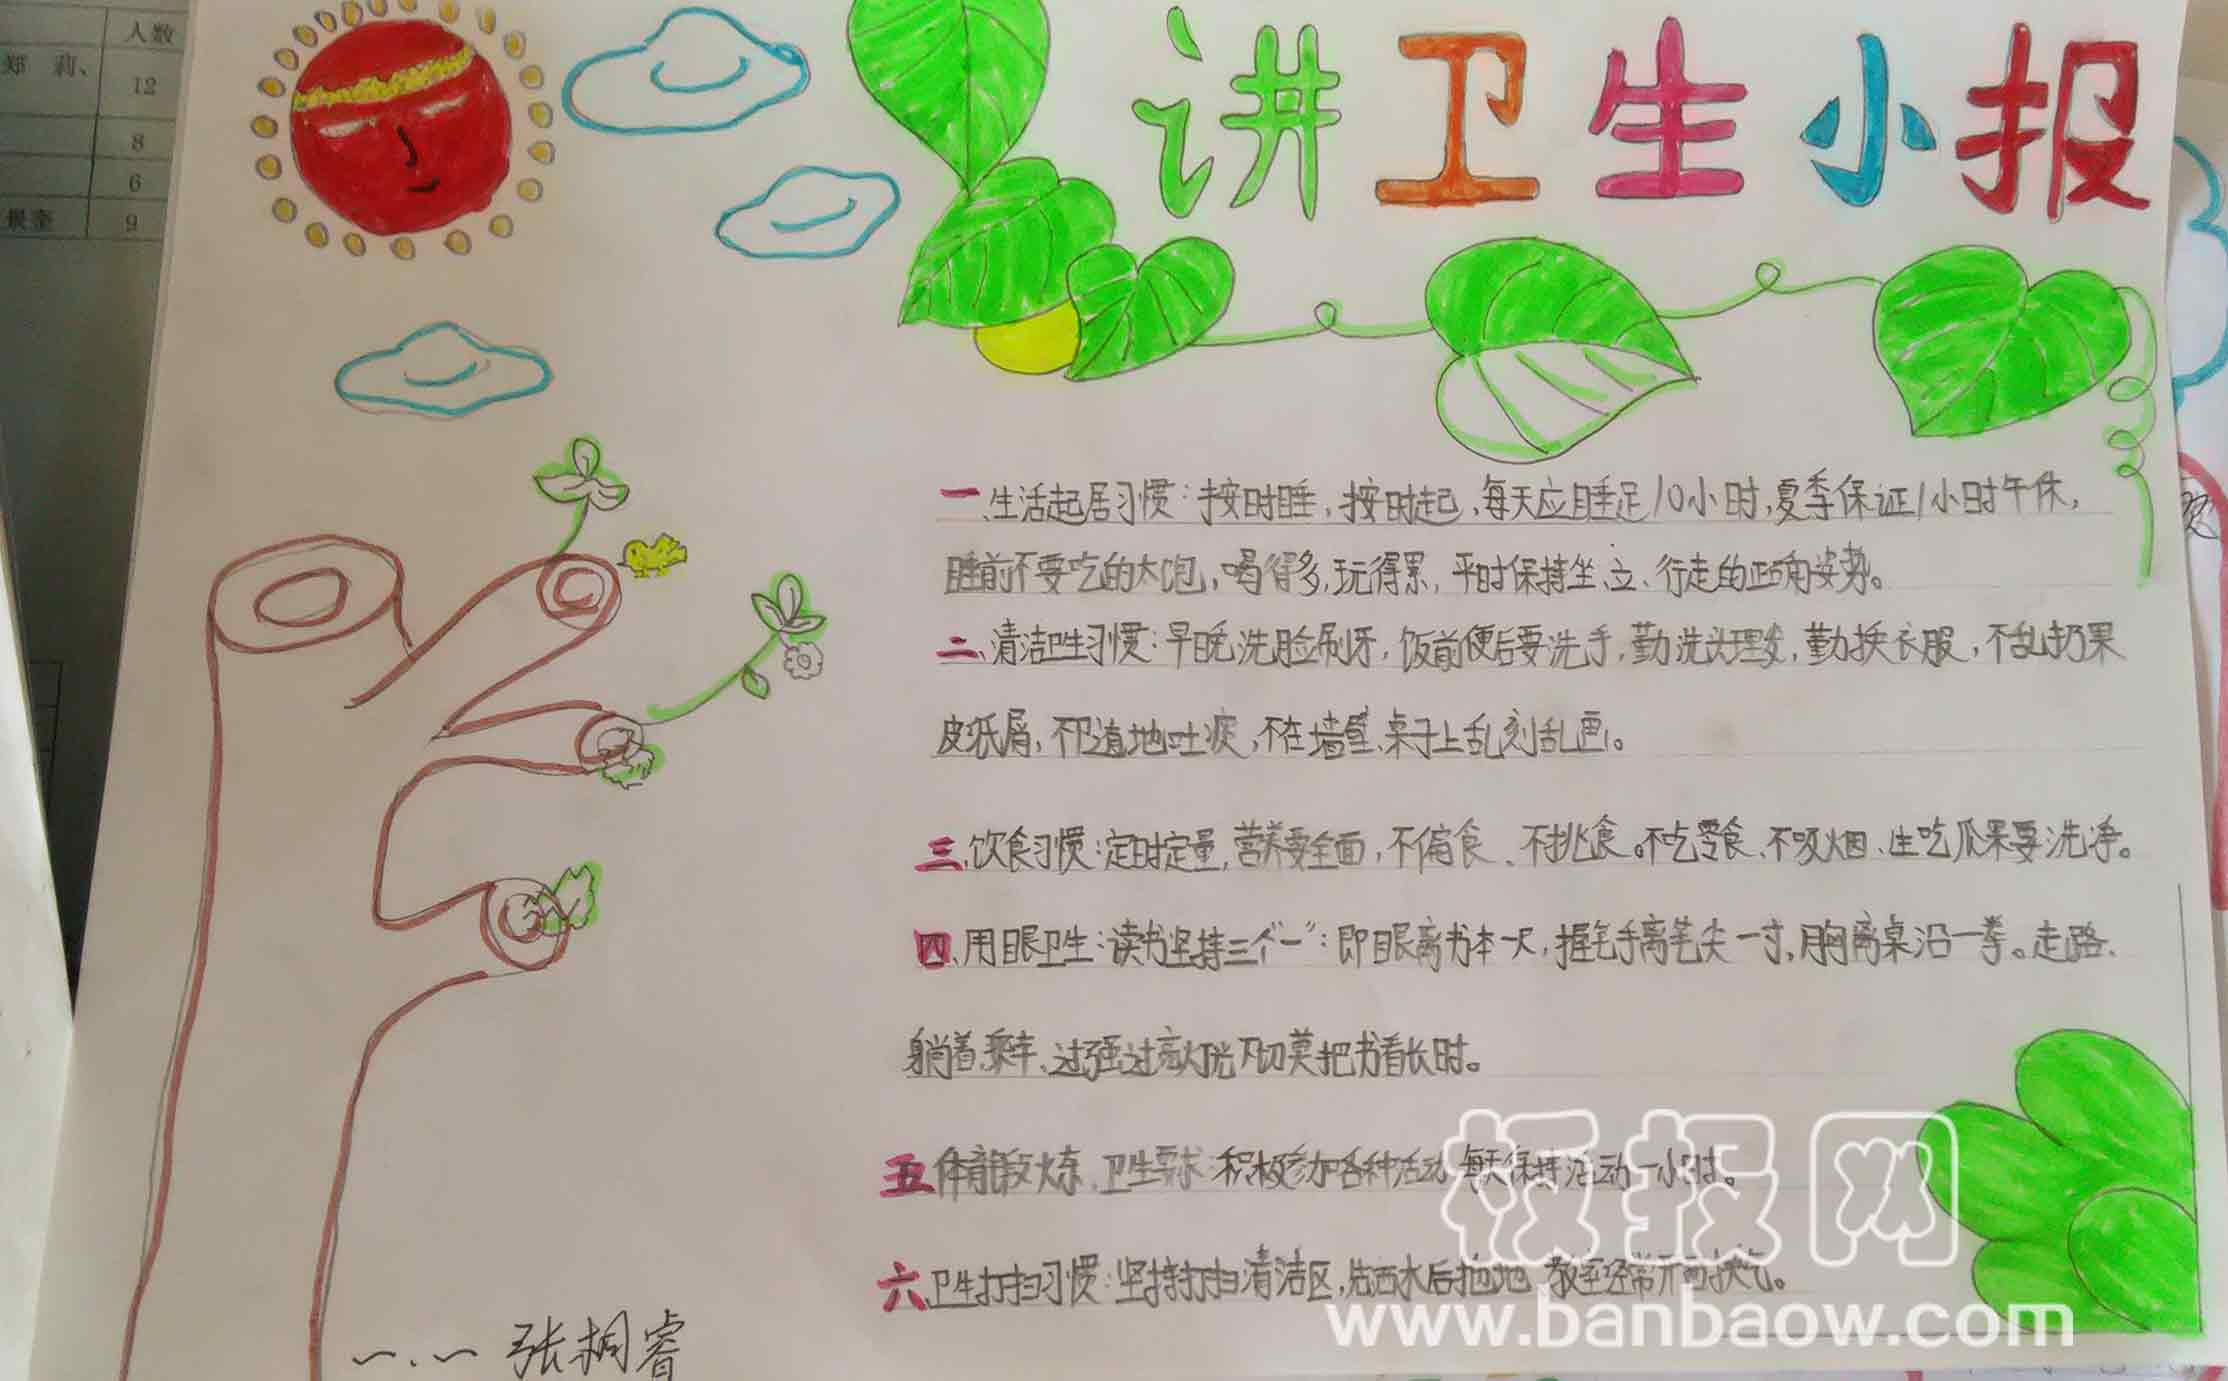 人数
郑 莉、
12
8
6
9
讲卫生小报
一、生活起居习惯:按时睡,按时起,每天应睡足10小时,夏季保证1小时午休,
睡前不要吃的太饱,喝得多,玩得累,平时保持坐、立、行走的正确姿势。
二、清洁卫生习惯:早晚洗脸刷牙,饭前便后要洗手,勤洗头理发,勤换衣服,不乱扔果
皮纸屑,不随地吐痰,不在墙壁、桌子上乱刻乱画。
三、饮食习惯:定时定量,营养要全面,不偏食、不挑食。不吃零食、不吸烟、生吃瓜果要洗净。
四、用眼卫生:读书坚持三个“一”:即眼离书本一尺,握笔手离笔尖一寸,胸离桌沿一拳。走路、
躺着、乘车、过强过亮灯光下切莫把书看长时。
五、体育锻炼、卫生要求:积极参加各种活动 每天保持活动一小时。
六、卫生打扫习惯:坚持打扫清洁区,先洒水后拖地,教室经常开窗换气。
张桐睿
板报网
www.banbaow.com